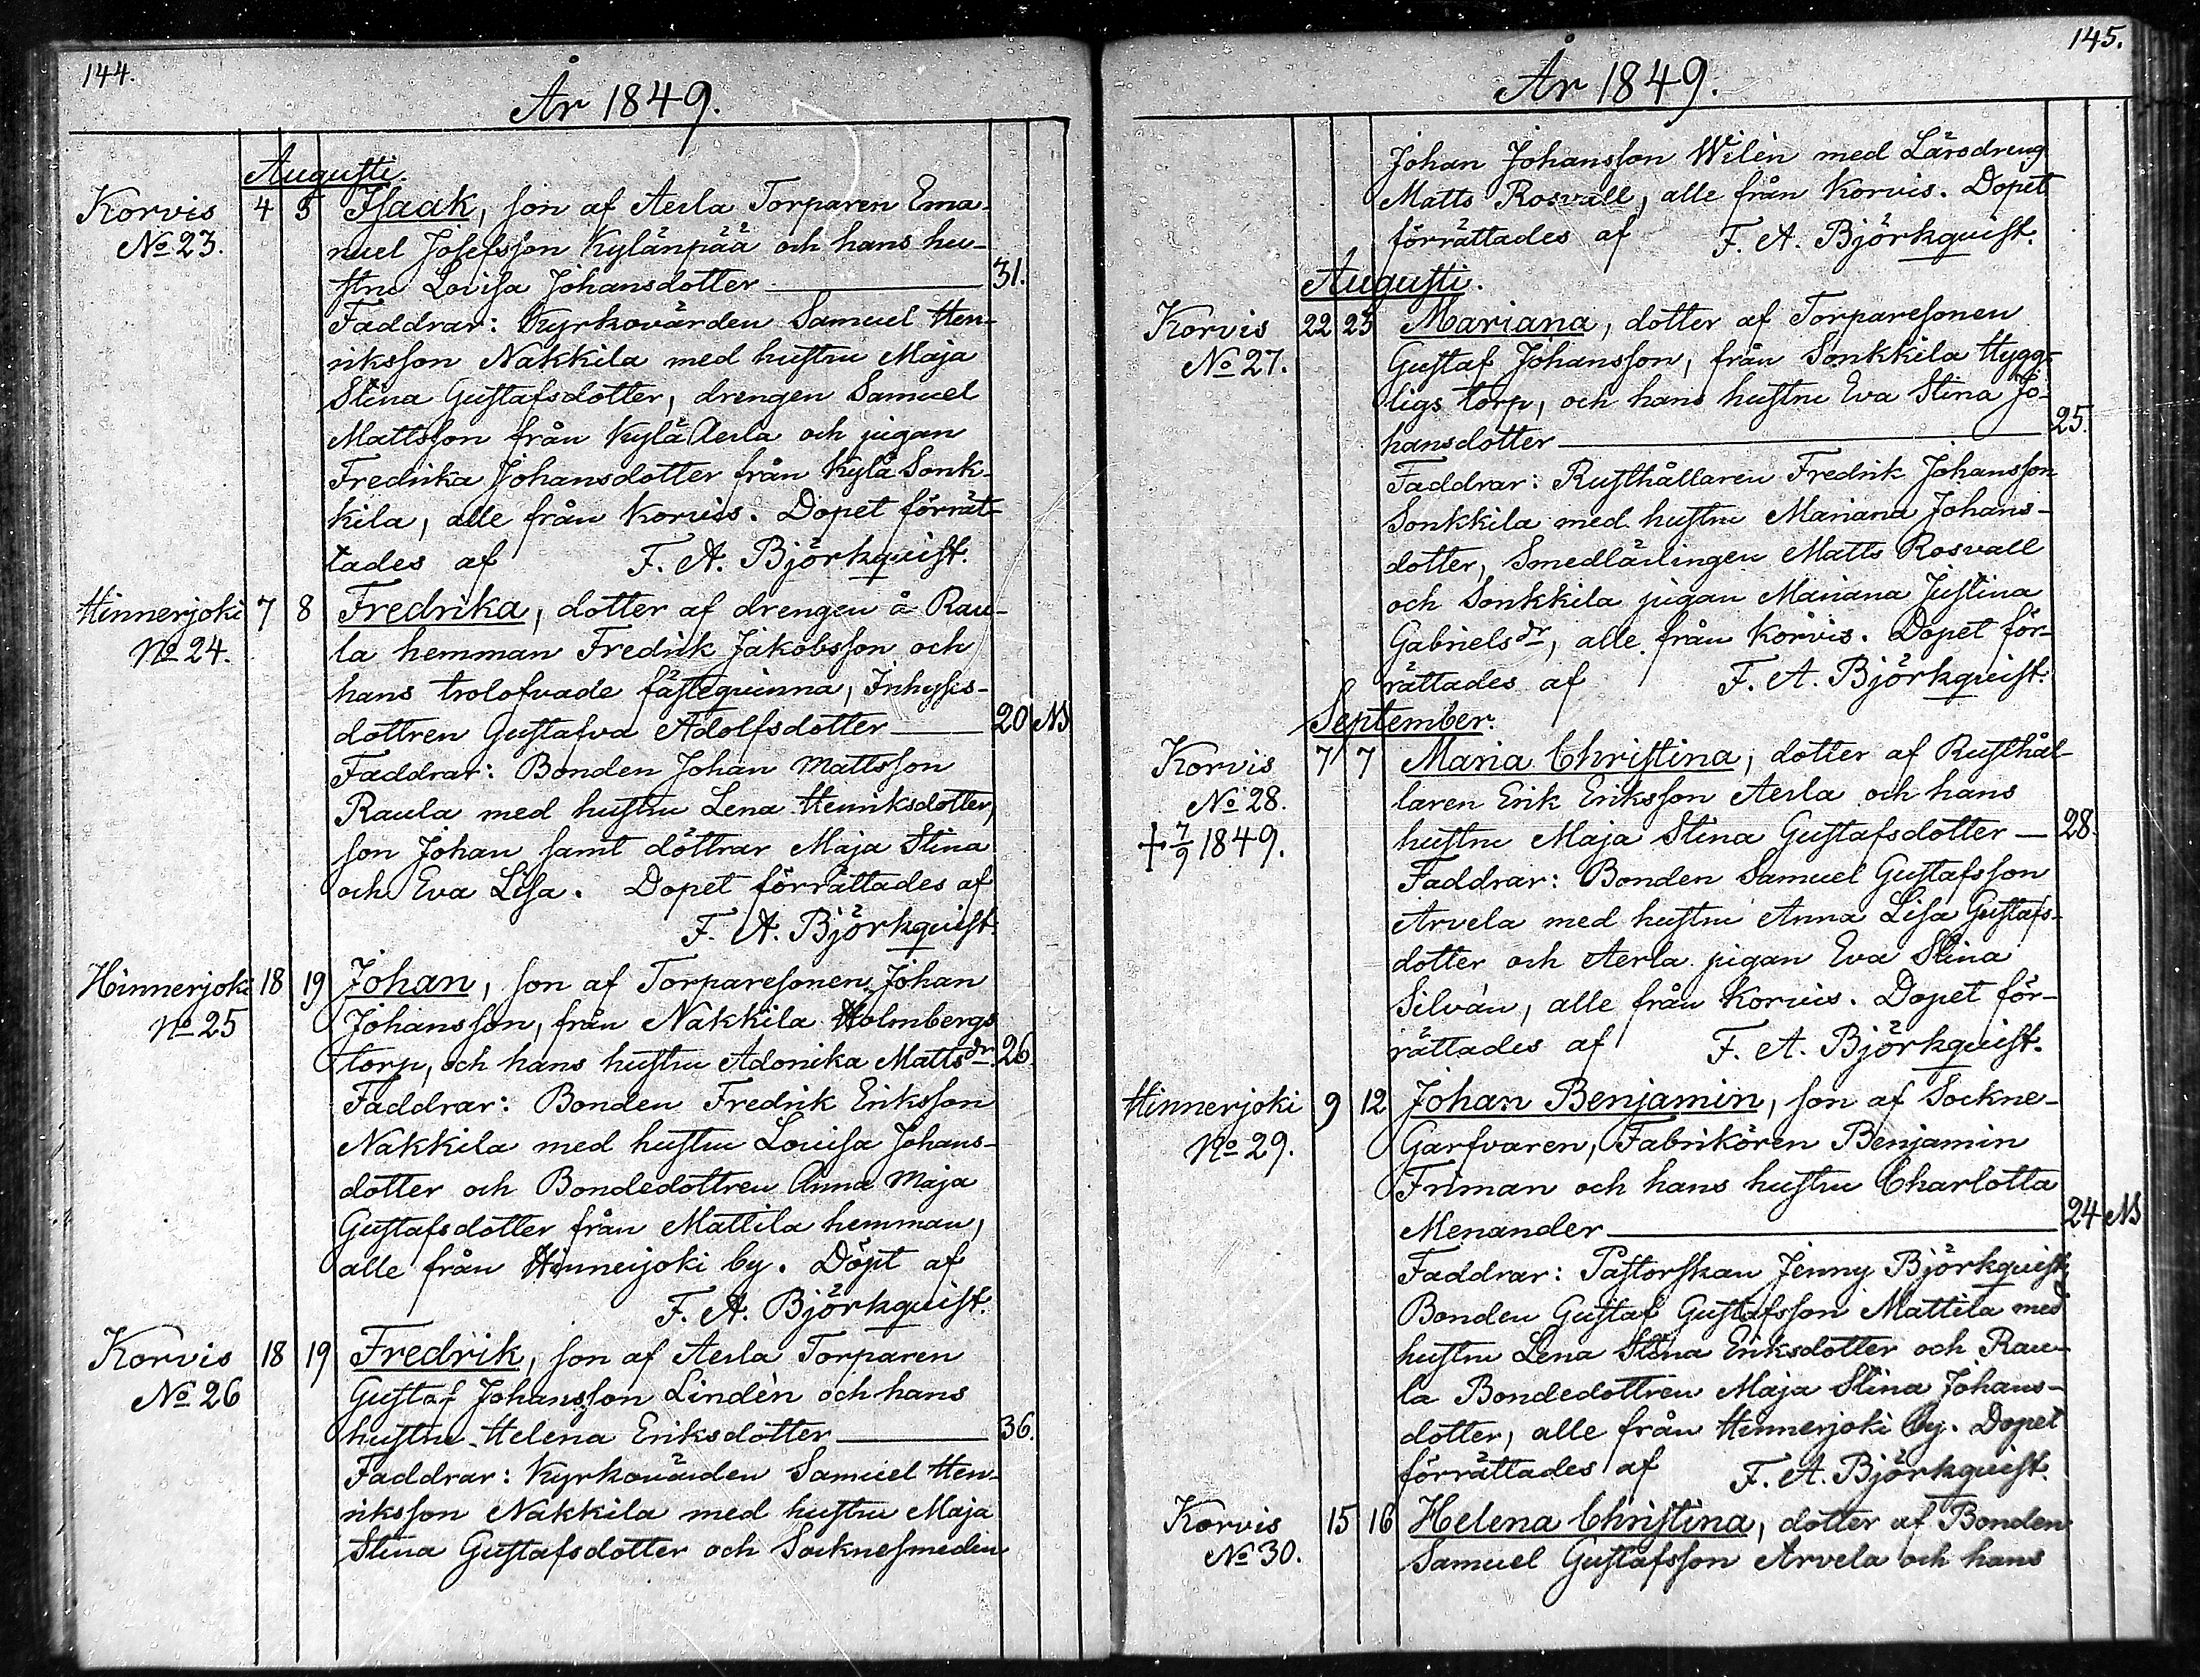 144.
År 1849.
Augusti.
Korvis 4 5 Isaak, son af Aerla Torparen Ema-
No 23. nuel Josefsson Kylänpää och hans hu-
stru Lovisa Johansdotter 31.
Faddrar: Kyrkovärden Samuel Hen-
riksson Nakkila med hustru Maja
Stina Gustafsdotter, drengen Samuel
Mattsson från Kylä Aerla och pigan
Fredrika Johansdotter från Kylä Sonk-
kila, alle från Korvis. Dopet förrät-
tades af F. A. Björkquist.
Hinnerjoki 7 8 Fredrika, dotter af drengen å Rau-
No 24. la hemman Fredrik Jakobsson och
hans trolofvade fästequinna, Inhyses-
dottren Gustafva Adolfsdotter 20 NB
Faddrar: Bonden Johan Mattsson
Raula med hustru Lena Henriksdotter,
son Johan samt döttrar Maja Stina
och Eva Lisa. Dopet förrättades af
F. A. Björkquist.
Hinnerjoki 18 19 Johan, son af Torparesonen Johan
No 25 Johansson, från Nakkila Holmbergs
torp, och hans hustru Adonika Mattsdr 26.
Faddrar: Bonden Fredrik Eriksson
Nakkila med hustru Lovisa Johans-
dotter och Bondedottren Anna Maja
Gustafsdotter från Mattila hemman,
alle från Hinnerjoki by. Döpt af
F. A. Björkquist.
Korvis 18 19 Fredrik, son af Aerla Torparen
No 26 Gustaf Johansson Lindèn och hans
hustru Helena Eriksdotter 36.
Faddrar: Kyrkovärden Samuel Hen-
riksson Nakkila med hustru Maja
Stina Gustafsdotter och Socknesmeden
145.
År 1849.
Johan Johansson Wilèn med Lärodreng
Matts Rosvall, alle från Korvis. Dopet
förrättades af F. A. Björkquist.
Augusti.
Korvis 22 25 Mariana, dotter af Torparesonen
No 27. Gustaf Johansson, från Sonkkila Hygg-
ligs torp, och hans hustru Eva Stina Jo-
hansdotter 25.
Faddrar: Rusthållaren Fredrik Johansson
Sonkkila med hustru Mariana Johans-
dotter, Smedlärlingen Matts Rosvall
och Sonkkila pigan Mariana Justina
Gabrielsdr, alle från Korvis. Dopet för-
rättades af F. A. Björkquist.
September.
Korvis 7 7 Maria Christina, dotter af Rusthål-
No 28. laren Erik Eriksson Aerla och hans
† 7/9 1849. hustru Maja Stina Gustafsdotter 28.
Faddrar: Bonden Samuel Gustafsson
Arvela med hustru Anna Lisa Gustafs-
dotter och Aerla pigan Eva Stina
Silván, alle från Korvis. Dopet för-
rättades af F. A. Björkquist.
Hinnerjoki 9 12 Johan Benjamin, son af Sockne-
No 29. Garfvaren, Fabrikören Benjamin
Friman och hans hustru Charlotta
Menander 24 NB
Faddrar: Pastorskan Jenny Björkquist,
Bonden Gustaf Gustafsson Mattila med
hustru Lena Stina Eriksdotter och Rau-
la Bondedottren Maja Stina Johans-
dotter, alle från Hinnerjoki by. Dopet
förrättades af F. A. Björkquist.
Korvis 15 16 Helena Christina, dotter af Bonden
No 30. Samuel Gustafsson Arvela och hans